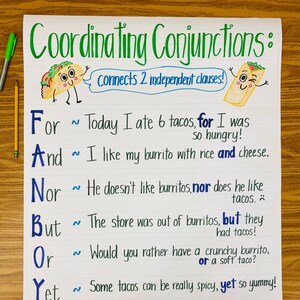 Coordinating Conjunctions:
connects 2 independent clauses!
For ~ Today I ate 6 tacos, for I was
so hungry!
And ~ I like my burrito with rice and cheese.
Nor ~ He doesn't like burritos, nor does he like
tacos.
But ~ The store was out of burritos, but they
had tacos!
Or ~ Would you rather have a crunchy burrito,
or a soft taco?
Yet ~ Some tacos can be really spicy, yet so yummy!